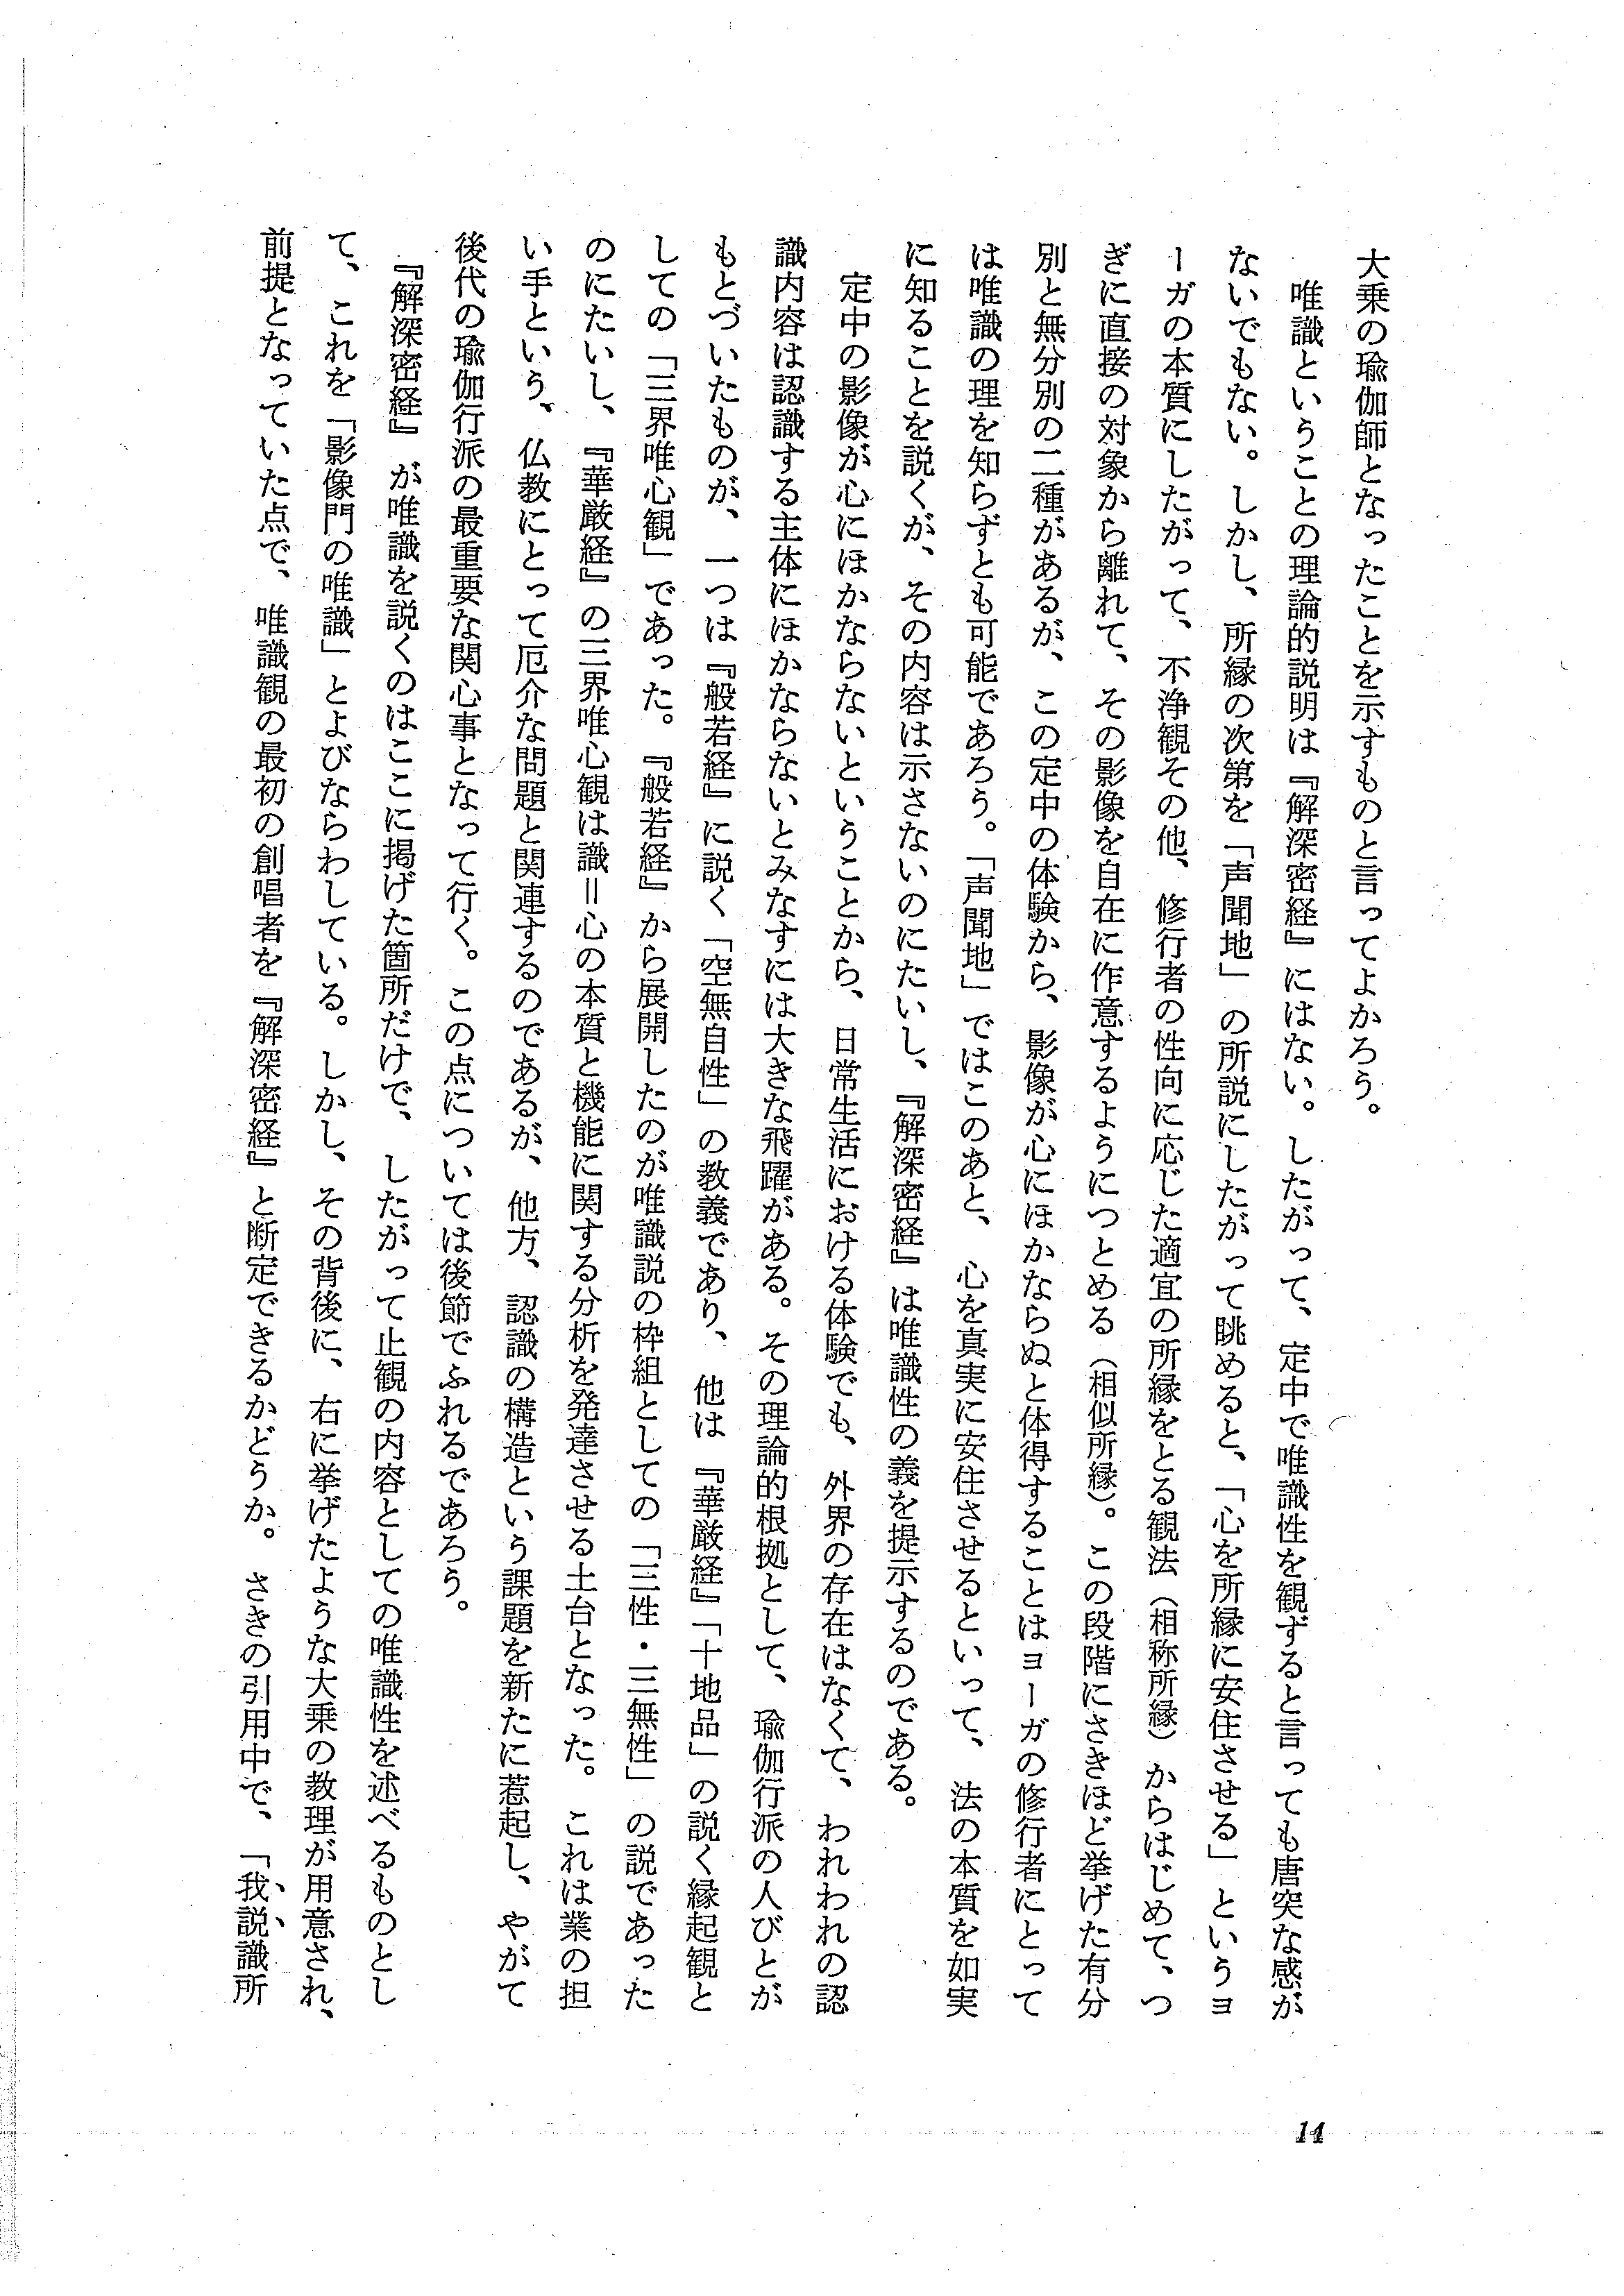 大乗の瑜伽師となったことを示すものと言ってよかろう。
唯識ということの理論的説明は『解深密経』にはない。したがって、定中で唯識性を観ずると言っても唐突な感が
ないでもない。しかし、所縁の次第を「声聞地」の所説にしたがって眺めると、「心を所縁に安住させる」というヨ
ーガの本質にしたがって、不浄観その他、修行者の性向に応じた適宜の所縁をとる観法（相称所縁）からはじめて、つ
ぎに直接の対象から離れて、その影像を自在に作意するようにつとめる（相似所縁）。この段階にさきほど挙げた有分
別と無分別の二種があるが、この定中の体験から、影像が心にほかならぬと体得することはヨーガの修行者にとって
は唯識の理を知らずとも可能であろう。「声聞地」ではこのあと、心を真実に安住させるといって、法の本質を如実
に知ることを説くが、その内容は示さないのにたいし、『解深密経』は唯識性の義を提示するのである。
定中の影像が心にほかならないということから、日常生活における体験でも、外界の存在はなくて、われわれの認
識内容は認識する主体にほかならないとみなすには大きな飛躍がある。その理論的根拠として、瑜伽行派の人びとが
もとづいたものが、一つは『般若経』に説く「空無自性」の教義であり、他は『華厳経』「十地品」の説く縁起観と
しての「三界唯心観」であった。『般若経』から展開したのが唯識説の枠組としての「三性・三無性」の説であった
のにたいし、『華厳経』の三界唯心観は識＝心の本質と機能に関する分析を発達させる土台となった。これは業の担
い手という、仏教にとって厄介な問題と関連するのであるが、他方、認識の構造という課題を新たに惹起し、やがて
後代の瑜伽行派の最重要な関心事となって行く。この点については後節でふれるであろう。
『解深密経』が唯識を説くのはここに掲げた箇所だけで、したがって止観の内容としての唯識性を述べるものとし
て、これを「影像門の唯識」とよびならわしている。しかし、その背後に、右に挙げたような大乗の教理が用意され、
前提となっていた点で、唯識観の最初の創唱者を『解深密経』と断定できるかどうか。さきの引用中で、「我説識所
14